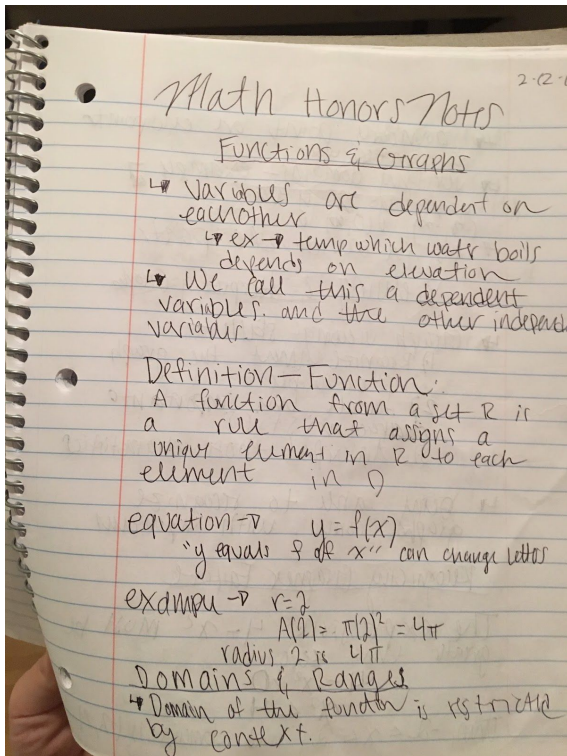 2-12-
Math Honors Notes
Functions & Graphs
↳ Variables are dependent on
eachother
↳ ex → temp which water boils
depends on elevation
↳ We call this a dependent
variables. and the other independ
variables.
Definition - Function:
A function from a set R is
a rule that assigns a
unique element in R to each
element in D
equation → y = f(x)
"y equals f of x" can change
example → r = 2
A(2) = π(2)² = 4π
radius 2 is 4π
Domains & Ranges
↳ Domain of the function is restricted
by context.